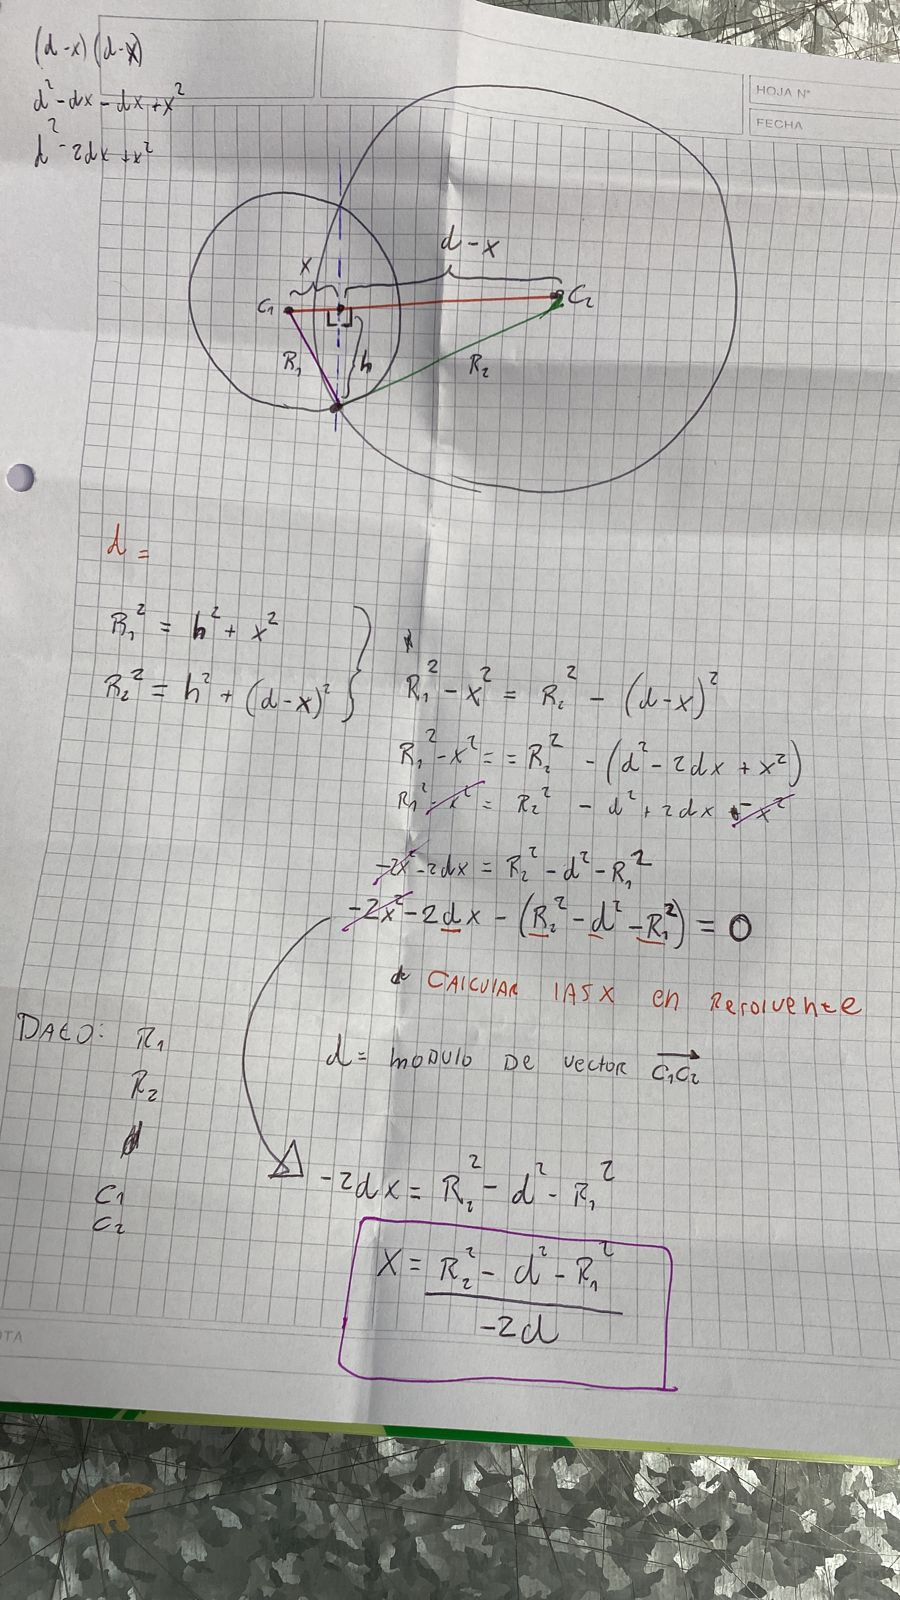 (d-x)(d-x)
d²-dx-dx+x²
d²-2dx+x²
HOJA N°
FECHA
d-x
x
C₁
C₂
R₁
h
R₂
d =
R₁² = h² + x²
R₂² = h² + (d-x)²
R₁² - x² = R₂² - (d-x)²
R₁² - x² = = R₂² - (d² - 2dx + x²)
R₁² - x² = R₂² - d² + 2dx - x²
-2x² - 2dx = R₂² - d² - R₁²
-2x² - 2dx - (R₂² - d² - R₁²) = 0
CALCULAR lAS X en Resolvente
DATO: R₁
R₂
C₁
C₂
d = MODULO DE vector C₁C₂
-2dx = R₂² - d² - R₁²
X = R₂² - d² - R₁²
-2d